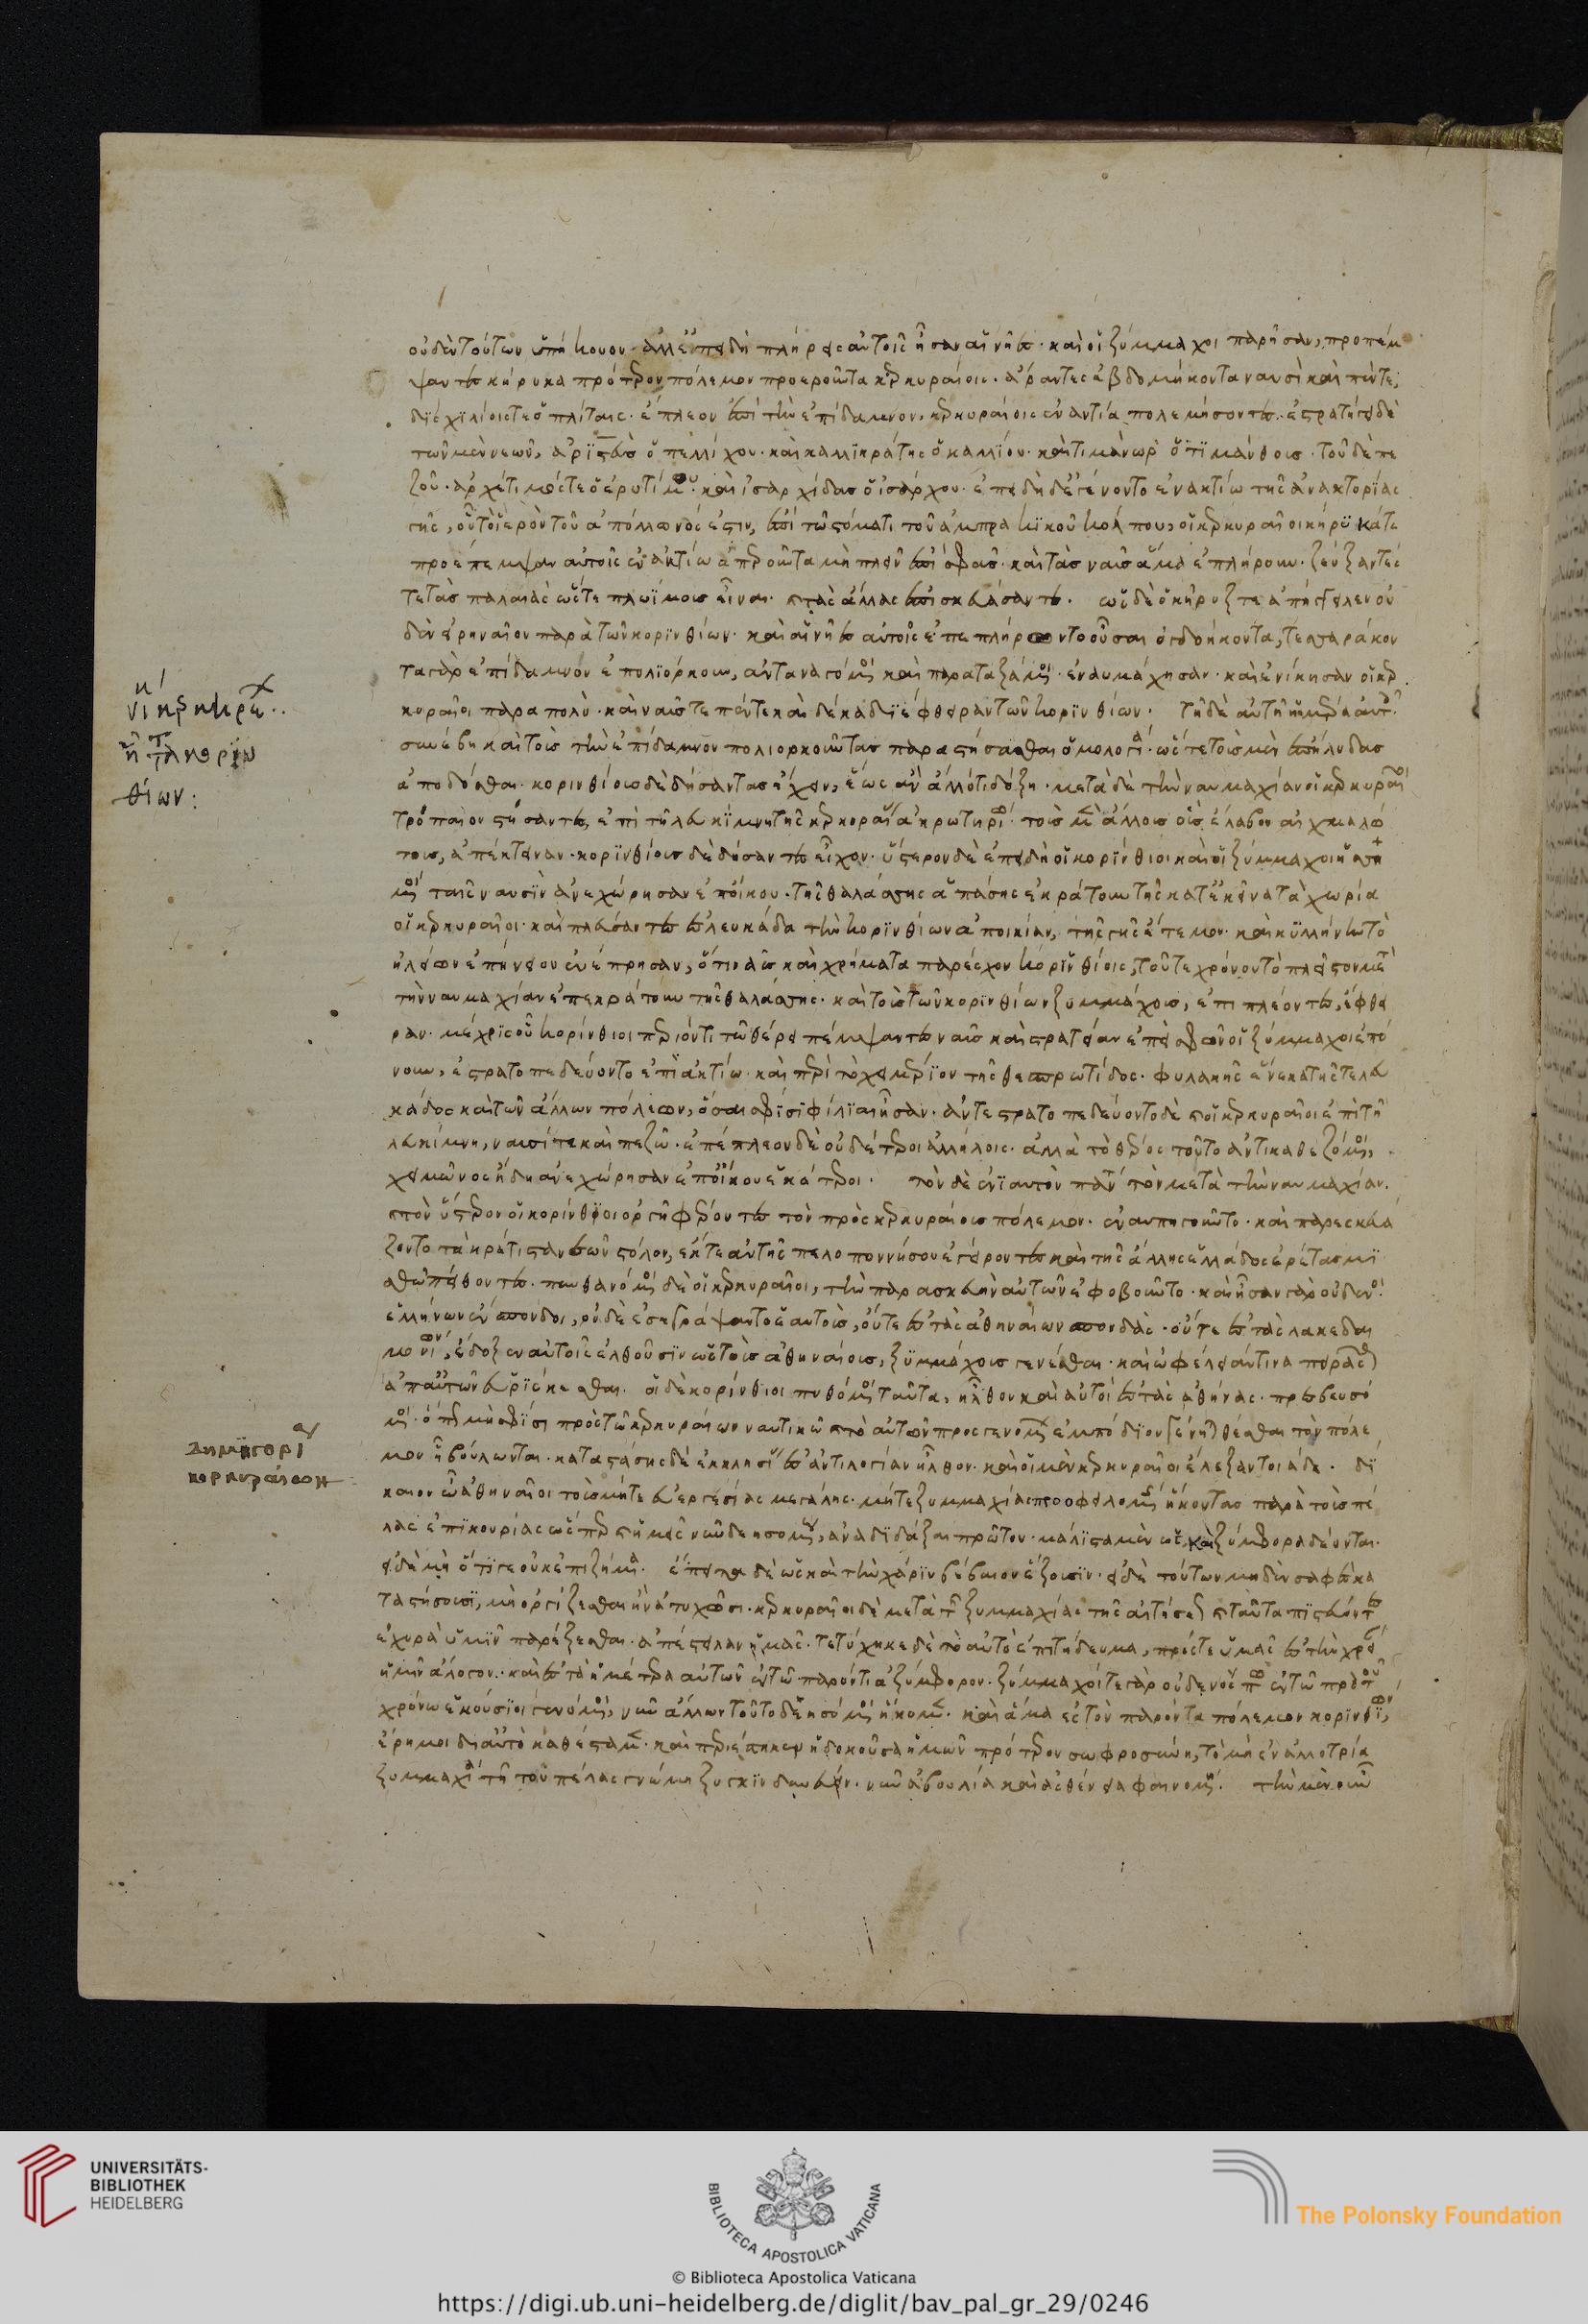 οὐδὲν τούτων ὑπήκουον· ἀλλ' ἐπειδὴ πλήρεις αὐτοῖς ἦσαν αἱ νῆες· καὶ οἱ ξύμμαχοι παρῆσαν, προπέμ
ψαντες κήρυκα πρότερον πόλεμον προεροῦντα κερκυραίοις· ἄραντες ἑβδομήκοντα ναυσὶ καὶ πέντε,
δισχιλίοις τε ὁπλίταις· ἔπλεον ἐπὶ τὴν ἐπίδαμνον, κερκυραίοις ἐναντία πολεμήσοντες· ἐστρατήγει δὲ
τῶν μὲν νεῶν, ἀριστεὺς ὁ πελλίχου· καὶ καλλικράτης ὁ καλλίου· καὶ τιμάνωρ ὁ τιμάνθους· τοῦ δὲ πε
ζοῦ· ἀρχέτιμός τε ὁ εὐρυτίμου· καὶ ἰσαρχίδας ὁ ἰσάρχου· ἐπειδὴ δ' ἐγένοντο ἐν ἀκτίω τῆς ἀνακτορίας
γῆς, οὗ τὸ ἱερὸν τοῦ ἀπόλλωνός ἐστιν, ἐπὶ τῶ στόματι τοῦ ἀμπρακικοῦ κόλπου, οἱ κερκυραῖοι κήρυκά τε
προέπεμψαν αὐτοῖς ἐν ἀκτίω ἀπεροῦντα μὴ πλεῖν ἐπὶ σφᾶς· καὶ τὰς ναῦς ἅμα ἐπλήρουν· ζεύξαντές
τε τὰς παλαιὰς ὥστε πλωΐμους εἶναι· καὶ τὰς ἄλλας ἐπισκευάσαντες· ὡς δὲ ὁ κῆρυξ τε ἀπήγγειλεν οὐ
δὲν εἰρηναῖον παρὰ τῶν κορινθίων· καὶ αἱ νῆες αὐτοῖς ἐπεπλήρωντο οὖσαι ὀγδοήκοντα, τεσσαράκον
τα γὰρ ἐπίδαμνον ἐπολιόρκουν, ἀνταναγόμενοι καὶ παραταξάμενοι· ἐναυμάχησαν· καὶ ἐνίκησαν οἱ κερ
κυραῖοι παρὰ πολύ· καὶ ναῦς τε πέντε καὶ δέκα διέφθειραν τῶν κορινθίων· τῇ δὲ αὐτῇ ἡμέρα αὐτοῖς
συνέβη καὶ τοὺς τὴν ἐπίδαμνον πολιορκοῦντας παραστήσασθαι ὁμολογία· ὥστε τοὺς μὲν ἐπήλυδας
ἀποδόσθαι· κορινθίους δὲ δήσαντας ἔχειν, ἕως ἂν ἄλλό τι δόξη· μετὰ δὲ τὴν ναυμαχίαν οἱ κερκυραῖοι
τρόπαιον στήσαντες, ἐπὶ τῇ λευκίμνη τῆς κερκυραίας ἀκρωτηρίω· τοὺς μὲν ἄλλους οὓς ἔλαβον αἰχμαλώ
τους, ἀπέκτειναν· κορινθίους δὲ δήσαντες εἶχον· ὕστερον δὲ ἐπειδὴ οἱ κορίνθιοι καὶ οἱ ξύμμαχοι ἡσση
μένοι ταῖς ναυσὶν ἀνεχώρησαν ἐπ' οἴκου· τῆς θαλάσσης ἁπάσης ἐκράτουν τῆς κατ' ἐκεῖνα τὰ χωρία
οἱ κερκυραῖοι· καὶ πλεύσαντες ἐς λευκάδα τὴν κορινθίων ἀποικίαν, τῆς γῆς ἔτεμον· καὶ κυλλήνην τὸ
ἠλείων ἐπίνειον ἐνέπρησαν, ὅτι ναῦς καὶ χρήματα παρέσχον κορινθίοις, τοῦ τε χρόνου τὸ πλεῖστον μετὰ
τὴν ναυμαχίαν ἐπεκράτουν τῆς θαλάσσης· καὶ τοὺς τῶν κορινθίων ξυμμάχους, ἐπιπλέοντες, ἔφθει
ραν· μέχρις οὗ κορίνθιοι περιόντι τῶ θέρει πέμψαντες ναῦς καὶ στρατείαν ἐπεὶ σφῶν οἱ ξύμμαχοι ἐπό
νουν, ἐστρατοπεδεύοντο ἐπὶ ἀκτίω· καὶ περὶ τὸ χειμέριον τῆς θεσπρωτίδος· φυλακῆς ἕνεκα τῆς τε λευ
κάδος καὶ τῶν ἄλλων πόλεων, ὅσαι σφίσι φίλιαι ἦσαν· ἀντεστρατοπεδεύοντο δὲ καὶ οἱ κερκυραῖοι ἐπὶ τῇ
λευκίμνη, ναυσί τε καὶ πεζῶ· ἐπέπλεον δὲ οὐδέτεροι ἀλλήλοις· ἀλλὰ τὸ θέρος τοῦτο ἀντικαθεζόμενοι,
χειμῶνος ἤδη ἀνεχώρησαν ἐπ' οἴκου ἑκάτεροι· τὸν δὲ ἐνιαυτὸν πάντα τὸν μετὰ τὴν ναυμαχίαν·
καὶ τὸν ὕστερον οἱ κορίνθιοι ὀργῇ φέροντες τὸν πρὸς κερκυραίους πόλεμον· ἐναυπηγοῦντο· καὶ παρεσκευά
ζοντο τὰ κράτιστα νεῶν στόλον, ἔκ τε αὐτῆς πελοποννήσου ἀγείροντες καὶ τῆς ἄλλης ἑλλάδος ἐρέτας μι
σθῶ πείθοντες· πυνθανόμενοι δὲ οἱ κερκυραῖοι, τὴν παρασκευὴν αὐτῶν ἐφοβοῦντο· καὶ ἦσαν γὰρ οὐδενὸς
ἑλλήνων ἔνσπονδοι, οὐδὲ ἐσεγράψαντο ἑαυτοὺς, οὔτε ἐς τὰς ἀθηναίων σπονδὰς· οὔτε ἐς τὰς λακεδαι
μονίων, ἔδοξεν αὐτοῖς ἐλθοῦσιν ὡς τοὺς ἀθηναίους, ξυμμάχους γενέσθαι· καὶ ὠφέλειάν τινα πειρᾶσθαι
ἀπ' αὐτῶν εὑρίσκεσθαι· οἱ δὲ κορίνθιοι πυθόμενοι ταῦτα, ἦλθον καὶ αὐτοὶ ἐς τὰς ἀθήνας· πρεσβευσό
μενοι· ὅπως μὴ σφίσι πρὸς τῶ κερκυραίων ναυτικῶ καὶ τὸ αὐτῶν προσγενόμενον ἐμπόδιον γένηται θέσθαι τὸν πόλε
μον ᾗ βούλονται· καταστάσης δὲ ἐκκλησίας ἐς ἀντιλογίαν ἦλθον· καὶ οἱ μὲν κερκυραῖοι ἔλεξαν τοιάδε· δί
καιον ὦ ἀθηναῖοι τοὺς μήτε εὐεργεσίας μεγάλης· μήτε ξυμμαχίας προοφειλομένης ἥκοντας παρὰ τοὺς πέ
λας ἐπικουρίας ὥσπερ καὶ ἡμεῖς νῦν δεησομένους, ἀναδιδάξαι πρῶτον· μάλιστα μὲν ὡς καὶ ξύμφορα δέονται·
εἰ δὲ μὴ ὅτι γε οὐκ ἐπιζήμια· ἔπειτα δὲ ὡς καὶ τὴν χάριν βέβαιον ἕξουσιν· εἰ δὲ τούτων μηδὲν σαφὲς κα
ταστήσουσι, μὴ ὀργίζεσθαι ἢν ἀτυχῶσι· κερκυραῖοι δὲ μετὰ τῆς ξυμμαχίας τῆς αἰτήσεως καὶ ταῦτα πιστεύοντες
ἐχυρὰ ὑμῖν παρέξεσθαι· ἀπέστειλαν ἡμᾶς· τετύχηκε δὲ τὸ αὐτὸ ἐπιτήδευμα, πρός τε ὑμᾶς ἐς τὴν χρείαν
ἡμῖν ἄλογον· καὶ ἐς τὰ ἡμέτερα αὐτῶν ἐν τῶ παρόντι ἀξύμφορον· ξύμμαχοί τε γὰρ οὐδενός πω ἐν τῶ πρὸ τοῦ
χρόνω ἑκούσιοι γενόμενοι, νῦν ἄλλων τοῦτο δεησόμενοι ἥκομεν· καὶ ἅμα ἐς τὸν παρόντα πόλεμον κορινθίων,
ἐρῆμοι δι' αὐτὸ καθέσταμεν· καὶ περιέστηκεν ἡ δοκοῦσα ἡμῶν πρότερον σωφροσύνη, τὸ μὴ ἐν ἀλλοτρία
ξυμμαχία τῇ τοῦ πέλας γνώμη ξυγκινδυνεύειν· νῦν ἀβουλία καὶ ἀσθένεια φαινομένη· τὴν μὲν οὖν
νί κερκυρα
ἧττα κοριν
θίων:
Δημηγορία
κερκυραίων
UNIVERSITÄTS-
BIBLIOTHEK
HEIDELBERG
BIBLIOTECA APOSTOLICA VATICANA
The Polonsky Foundation
© Biblioteca Apostolica Vaticana
https://digi.ub.uni-heidelberg.de/diglit/bav_pal_gr_29/0246